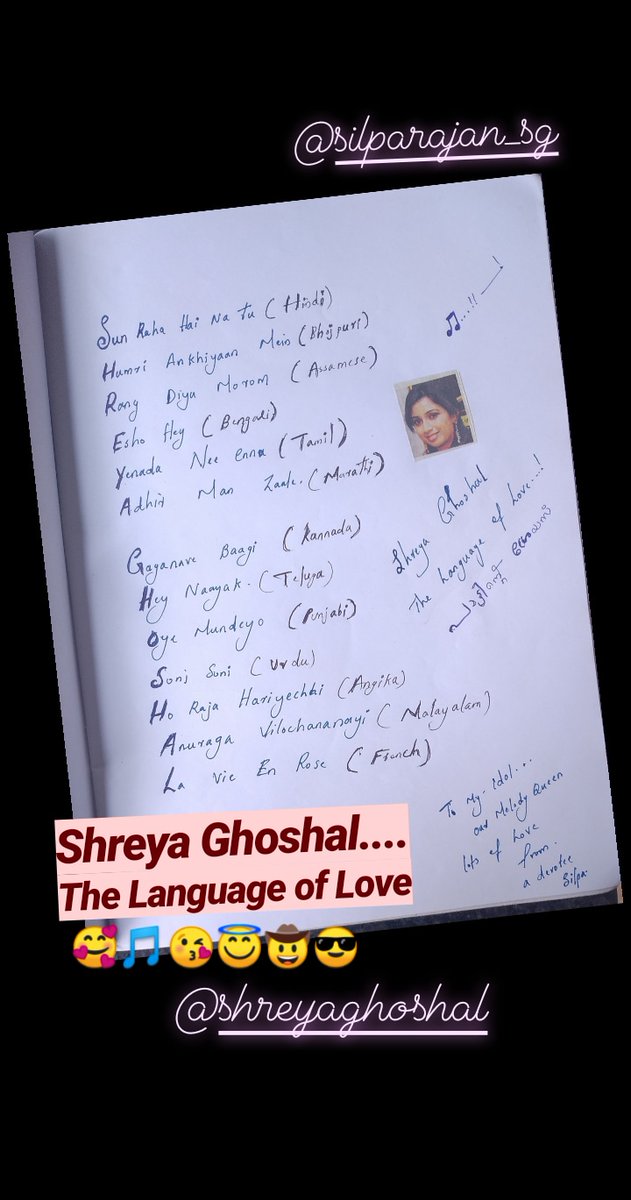 @silparajan_sg
Sun Raha Hai Na Tu (Hindi)
Humri Ankhiyaan Mein (Bhojpuri)
Rang Diya Morom (Assamese)
Esho Hey (Bengali)
Yenada Nee enna (Tamil)
Adhir Man Zaale. (Marathi)
Gaganave Baagi (Kannada)
Hey Naayak. (Telugu)
Oye Mundeyo (Punjabi)
Soni Soni (Urdu)
Ho Raja Hariyechhi (Angika)
Anuraga Vilochananayi (Malayalam)
La Vie En Rose (French)
Shreya Ghoshal
The Language of Love...!
To My idol...
our Melody Queen
lots of Love
from.
a devotee
Silpa.
Shreya Ghoshal....
The Language of Love
@shreyaghoshal